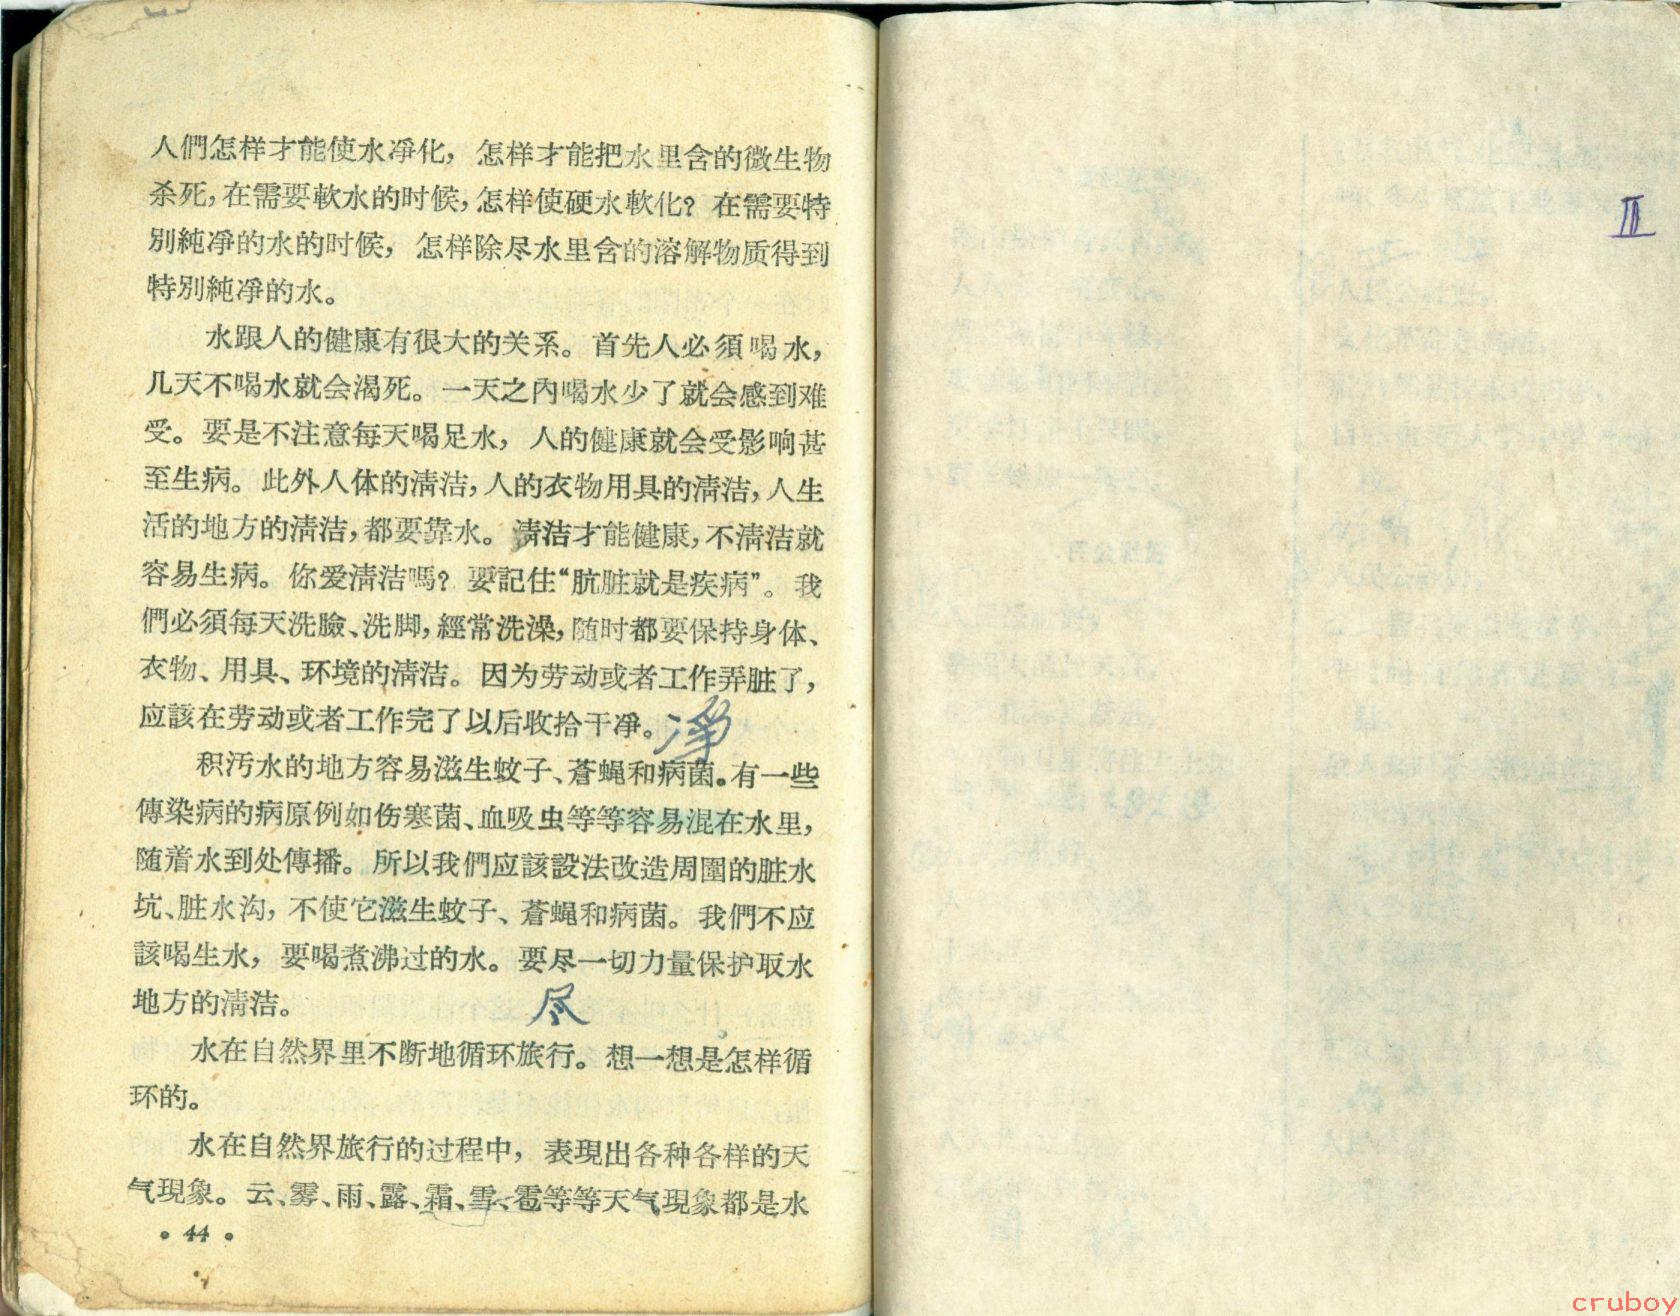 人們怎样才能使水凈化，怎样才能把水里含的微生物
杀死，在需要軟水的时候，怎样使硬水軟化？在需要特
別純凈的水的时候，怎样除尽水里含的溶解物质得到
特別純凈的水。
水跟人的健康有很大的关系。首先人必須喝水，
几天不喝水就会渴死。一天之內喝水少了就会感到难
受。要是不注意每天喝足水，人的健康就会受影响甚
至生病。此外人体的清洁，人的衣物用具的清洁，人生
活的地方的清洁，都要靠水。清洁才能健康，不清洁就
容易生病。你爱清洁嗎？要記住“肮脏就是疾病”。我
們必須每天洗臉、洗脚，經常洗澡，随时都要保持身体、
衣物、用具、环境的清洁。因为劳动或者工作弄脏了，
应該在劳动或者工作完了以后收拾干凈。
凈
积汚水的地方容易滋生蚊子、蒼蝇和病菌。有一些
傳染病的病原例如伤寒菌、血吸虫等等容易混在水里，
随着水到处傳播。所以我們应該設法改造周圍的脏水
坑、脏水沟，不使它滋生蚊子、蒼蝇和病菌。我們不应
該喝生水，要喝煮沸过的水。要尽一切力量保护取水
地方的清洁。
尽
水在自然界里不断地循环旅行。想一想是怎样循
环的。
水在自然界旅行的过程中，表現出各种各样的天
气現象。云、雾、雨、露、霜、雪、雹等等天气現象都是水
• 44 •
III
cruboy